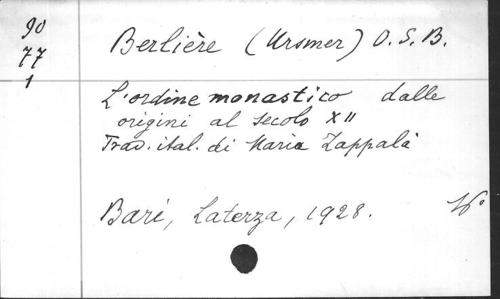 90
77
1
Berlière (Ursmer) O.S.B.
L'ordine monastico dalle
origini al secolo XII
Trad. ital. di Maria Zappalà
Bari, Laterza, 1928.